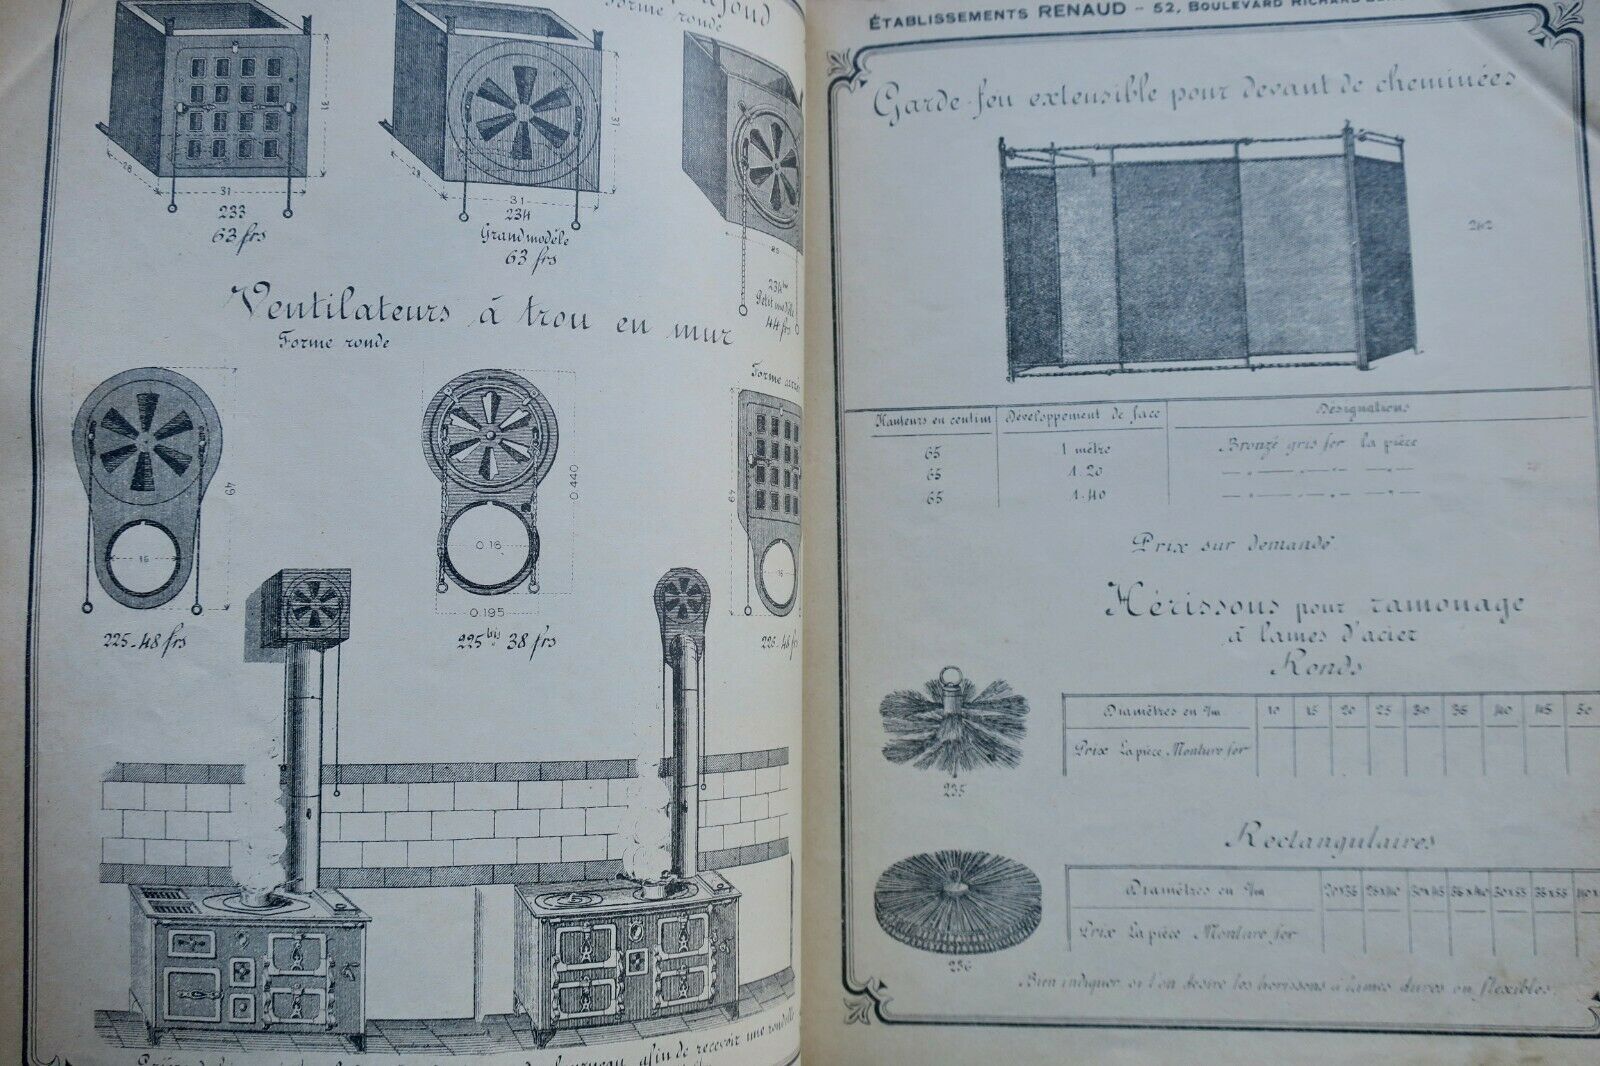 Forme ronde
31
28
31
233
63 frs
31
28
31
234
Grand modèle
63 frs
234 bis
Petit modèle
44 frs
Ventilateurs à trou en mur
Forme ronde
49
16
225 - 48 frs
0.440
0.18
0.195
225 bis 38 frs
Forme
49
16
226 - 48 frs
afin de recevoir une rondelle
ÉTABLISSEMENTS RENAUD - 52, BOULEVARD RICHARD
Garde-feu extensible pour devant de cheminées
242
Hauteurs en centim Développement de face Désignations
65 1 mètre Bronzé gris fer la pièce
65 1.20 — „ — „ — „ —
65 1.40 — „ — „ — „ —
Prix sur demande
Hérissons pour ramonage
à lames d'acier
Ronds
Diamètres en c/m 10 15 20 25 30 35 40 45 50
Prix La pièce Monture fer
235
Rectangulaires
Diamètres en c/m 20x35 25x40 30x45 35x40 30x55 35x55
Prix La pièce Monture fer
236
Bien indiquer si l'on désire les hérissons à lames dures ou flexibles.